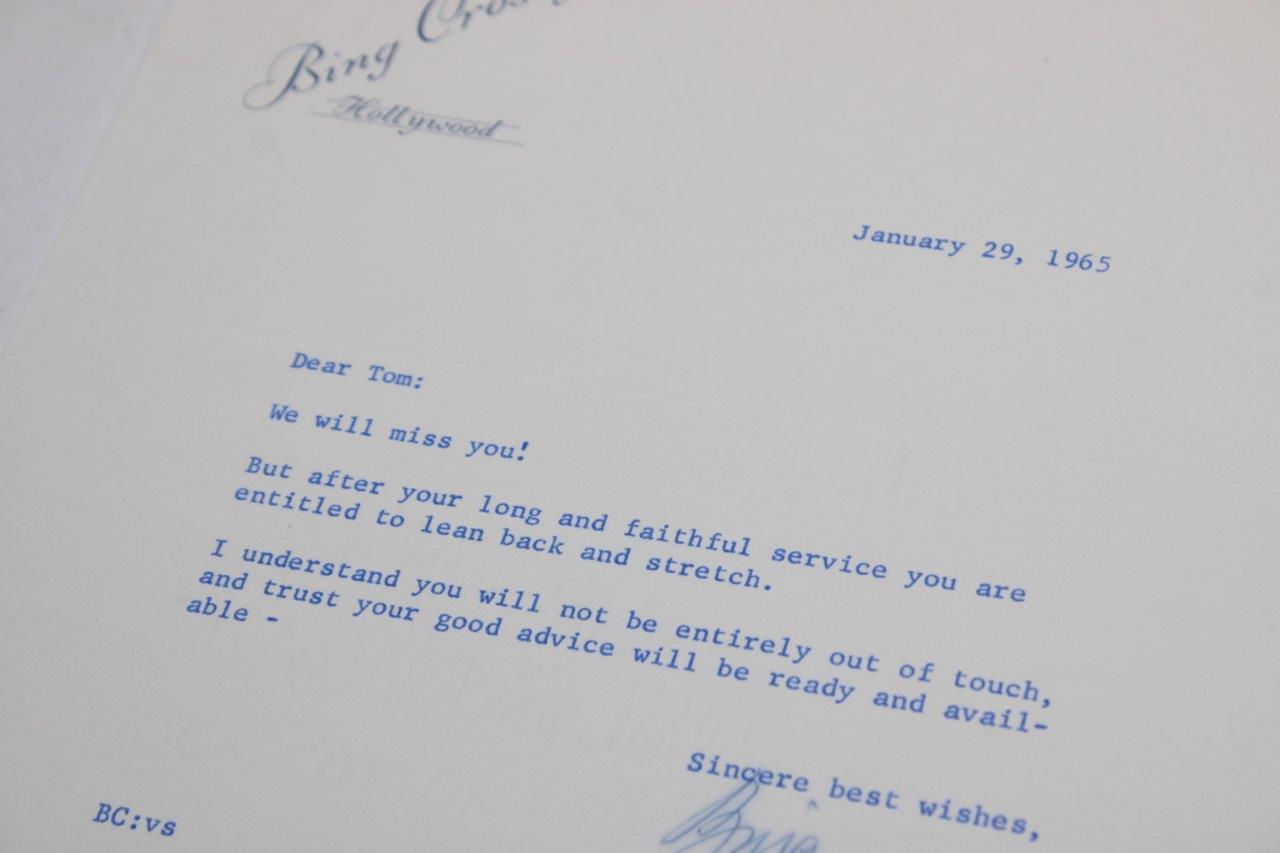 Bing Cros
Hollywood
January 29, 1965
Dear Tom:
We will miss you!
But after your long and faithful service you are
entitled to lean back and stretch.
I understand you will not be entirely out of touch,
and trust your good advice will be ready and avail-
able -
Sincere best wishes,
Bing
BC:vs